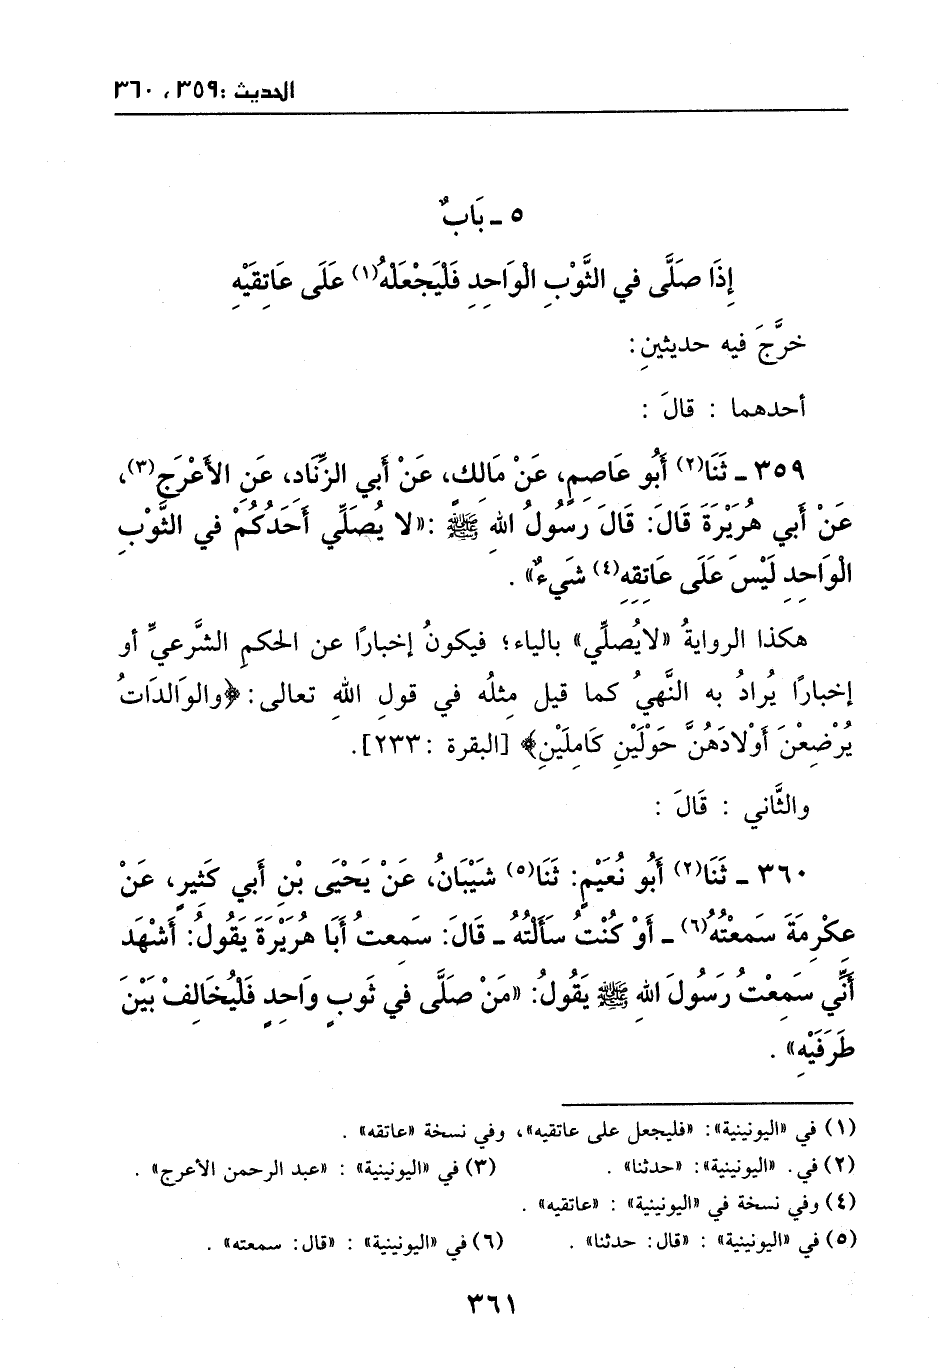 الحديث : ٣٥٩ ، ٣٦٠
٥ ـ بَابٌ
إِذَا صَلَّى في الثَّوْبِ الْوَاحِدِ فَلْيَجْعَلْهُ(١) عَلَى عَاتِقَيْهِ
خرَّجَ فيه حديثينِ :
أحدهما : قالَ :
٣٥٩ ـ ثَنَا(٢) أَبُو عَاصِمٍ، عَنْ مَالِكٍ، عَنْ أَبي الزِّنَادِ، عَنِ الأَعْرَجِ(٣)،
عَنْ أَبي هُرَيْرَةَ قَالَ: قَالَ رَسُولُ اللهِ ﷺ :«لا يُصَلِّي أَحَدُكُمْ في الثَّوْبِ
الْوَاحِدِ لَيْسَ عَلَى عَاتِقِهِ(٤) شَيءٌ» .
هكذا الروايةُ «لايُصلِّي» بالياء؛ فيكونُ إخبارًا عن الحكمِ الشَّرعيِّ أو
إخبارًا يُرادُ به النَّهيُ كما قيل مِثلُه في قولِ اللهِ تعالى: ﴿والوَالدَاتُ
يُرْضِعْنَ أَوْلادَهُنَّ حَوْلَيْنِ كَامِلَيْنِ﴾ [البقرة :٢٣٣].
والثَّاني : قَالَ :
٣٦٠ ـ ثَنَا(٢) أَبُو نُعَيْمٍ: ثَنَا(٥) شَيْبَانُ، عَنْ يَحْيَى بْنِ أَبي كَثِيرٍ، عَنْ
عِكْرِمَةَ سَمِعْتُهُ(٦) ـ أَوْ كُنْتُ سَأَلْتُهُ ـ قَالَ: سَمِعتُ أَبَا هُرَيْرَةَ يَقُولُ: أَشْهَد
أَنِّي سَمِعْتُ رَسُولَ اللهِ ﷺ يَقُولُ: «مَنْ صَلَّى في ثَوبٍ وَاحِدٍ فَلْيُخَالِفْ بَيْنَ
طَرَفَيْهِ» .
(١) في «اليونينية»: «فليجعل على عاتقيه»، وفي نسخة «عاتقه» .
(٢) في. «اليونينية»: «حدثنا» . (٣) في «اليونينية» : «عبد الرحمن الأعرج» .
(٤) وفي نسخة في «اليونينية» : «عاتقيه» .
(٥) في «اليونينية» : «قال: حدثنا» . (٦) في «اليونينية» : «قال: سمعته» .
٣٦١